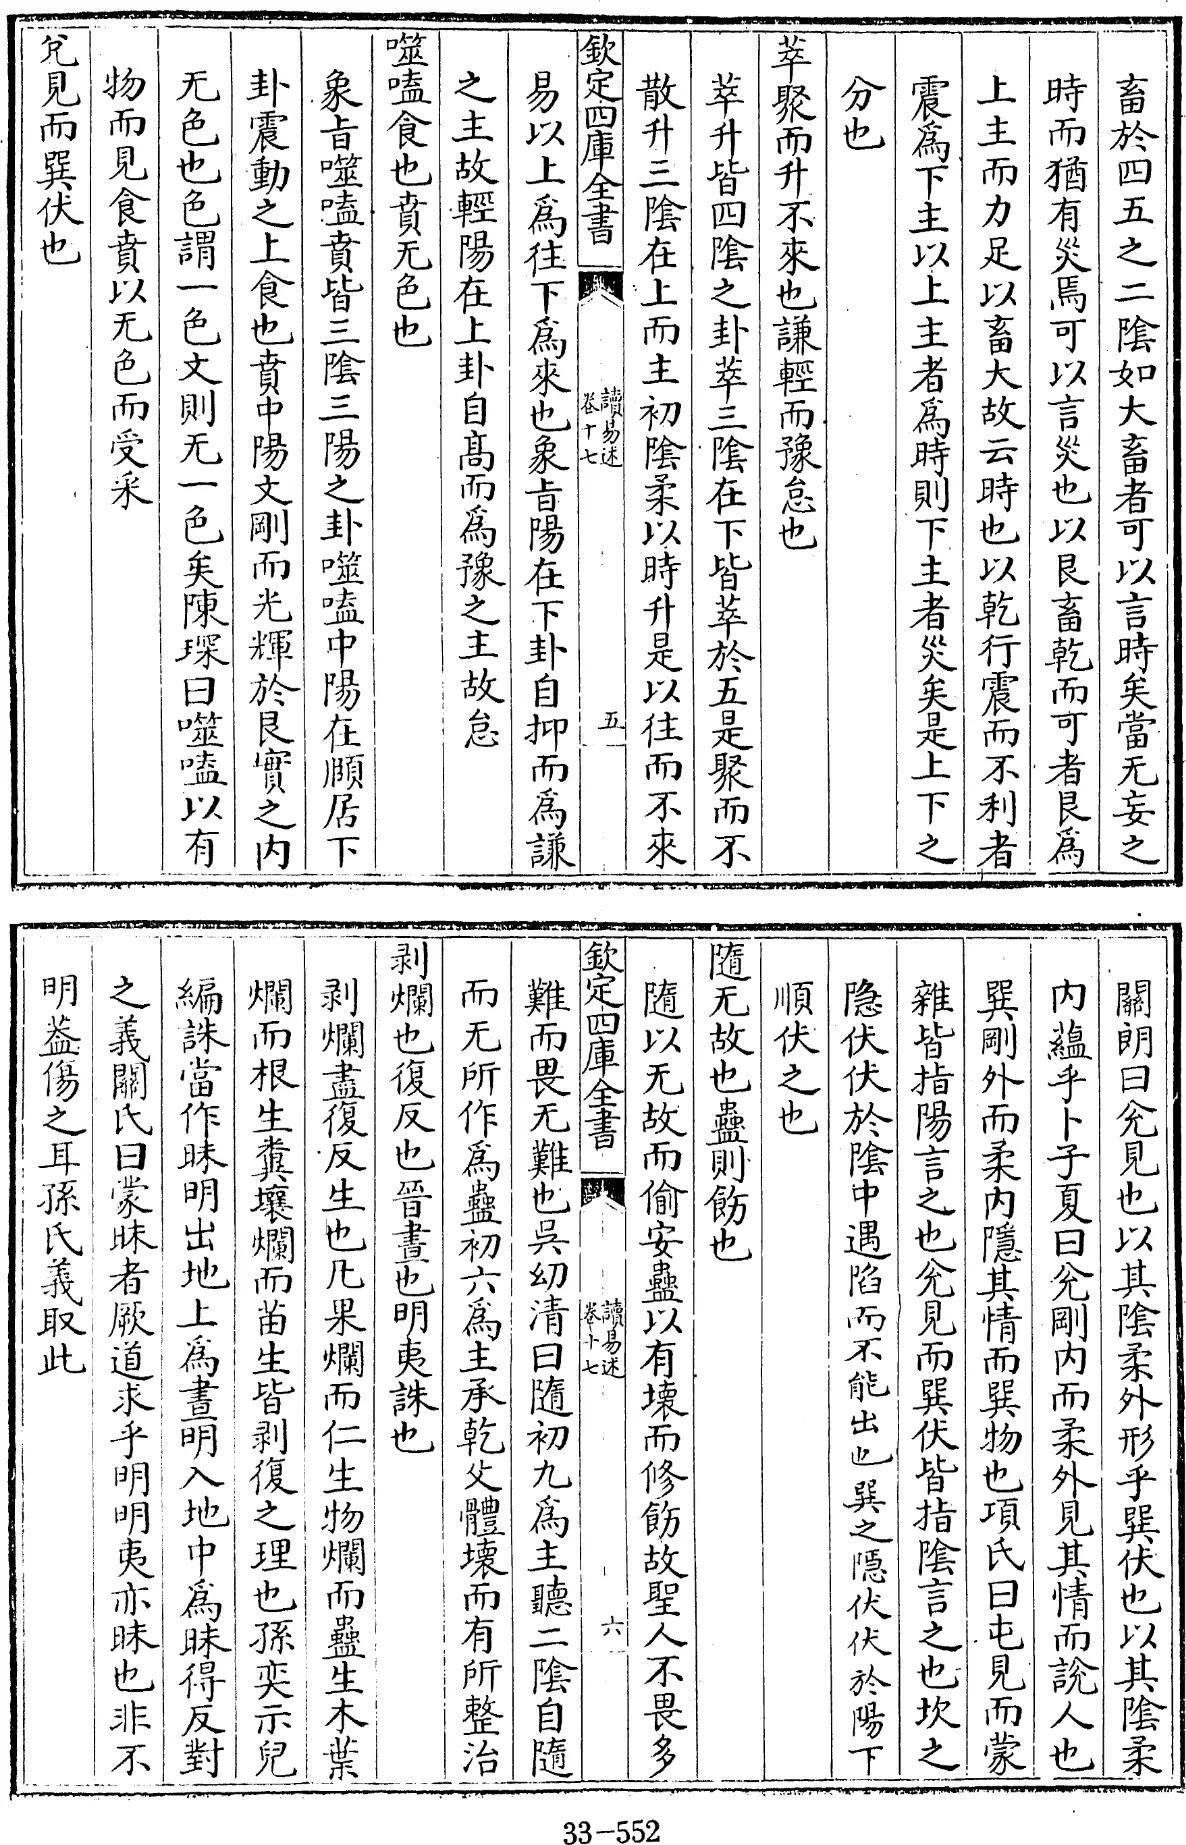 畜於四五之二陰如大畜者可以言時矣當无妄之
時而猶有災焉可以言災也以艮畜乾而可者艮爲
上主而力足以畜大故云時也以乾行震而不利者
震爲下主以上主者爲時則下主者災矣是上下之
分也
萃聚而升不來也謙輕而豫怠也
萃升皆四陰之卦萃三陰在下皆萃於五是聚而不
散升三陰在上而主初陰柔以時升是以往而不來
欽定四庫全書
讀易述
卷十七
五
易以上爲往下爲來也彖旨陽在下卦自抑而爲謙
之主故輕陽在上卦自髙而爲豫之主故怠
噬嗑食也賁无色也
彖旨噬嗑賁皆三陰三陽之卦噬嗑中陽在頤居下
卦震動之上食也賁中陽文剛而光輝於艮實之内
无色也色謂一色文則无一色矣陳琛曰噬嗑以有
物而見食賁以无色而受采
兊見而巽伏也
關朗曰兊見也以其陰柔外形乎巽伏也以其陰柔
内蘊乎卜子夏曰兊剛内而柔外見其情而說人也
巽剛外而柔内隱其情而巽物也項氏曰屯見而蒙
雜皆指陽言之也兊見而巽伏皆指陰言之也坎之
隐伏伏於陰中遇陷而不能出也巽之隱伏伏於陽下
順伏之也
隨无故也蠱則飭也
隨以无故而偷安蠱以有壊而修飭故聖人不畏多
欽定四庫全書
讀易述
卷十七
六
難而畏无難也吳幼清曰隨初九爲主聽二陰自隨
而无所作爲蠱初六爲主承乾父體壊而有所整治
剥爛也復反也晉晝也明夷誅也
剥爛盡復反生也凡果爛而仁生物爛而蠱生木葉
爛而根生糞壤爛而苗生皆剥復之理也孫奕示兒
編誅當作昧明出地上爲晝明入地中爲昧得反對
之義關氏曰蒙昧者厥道求乎明明夷亦昧也非不
明葢傷之耳孫氏義取此
33-552